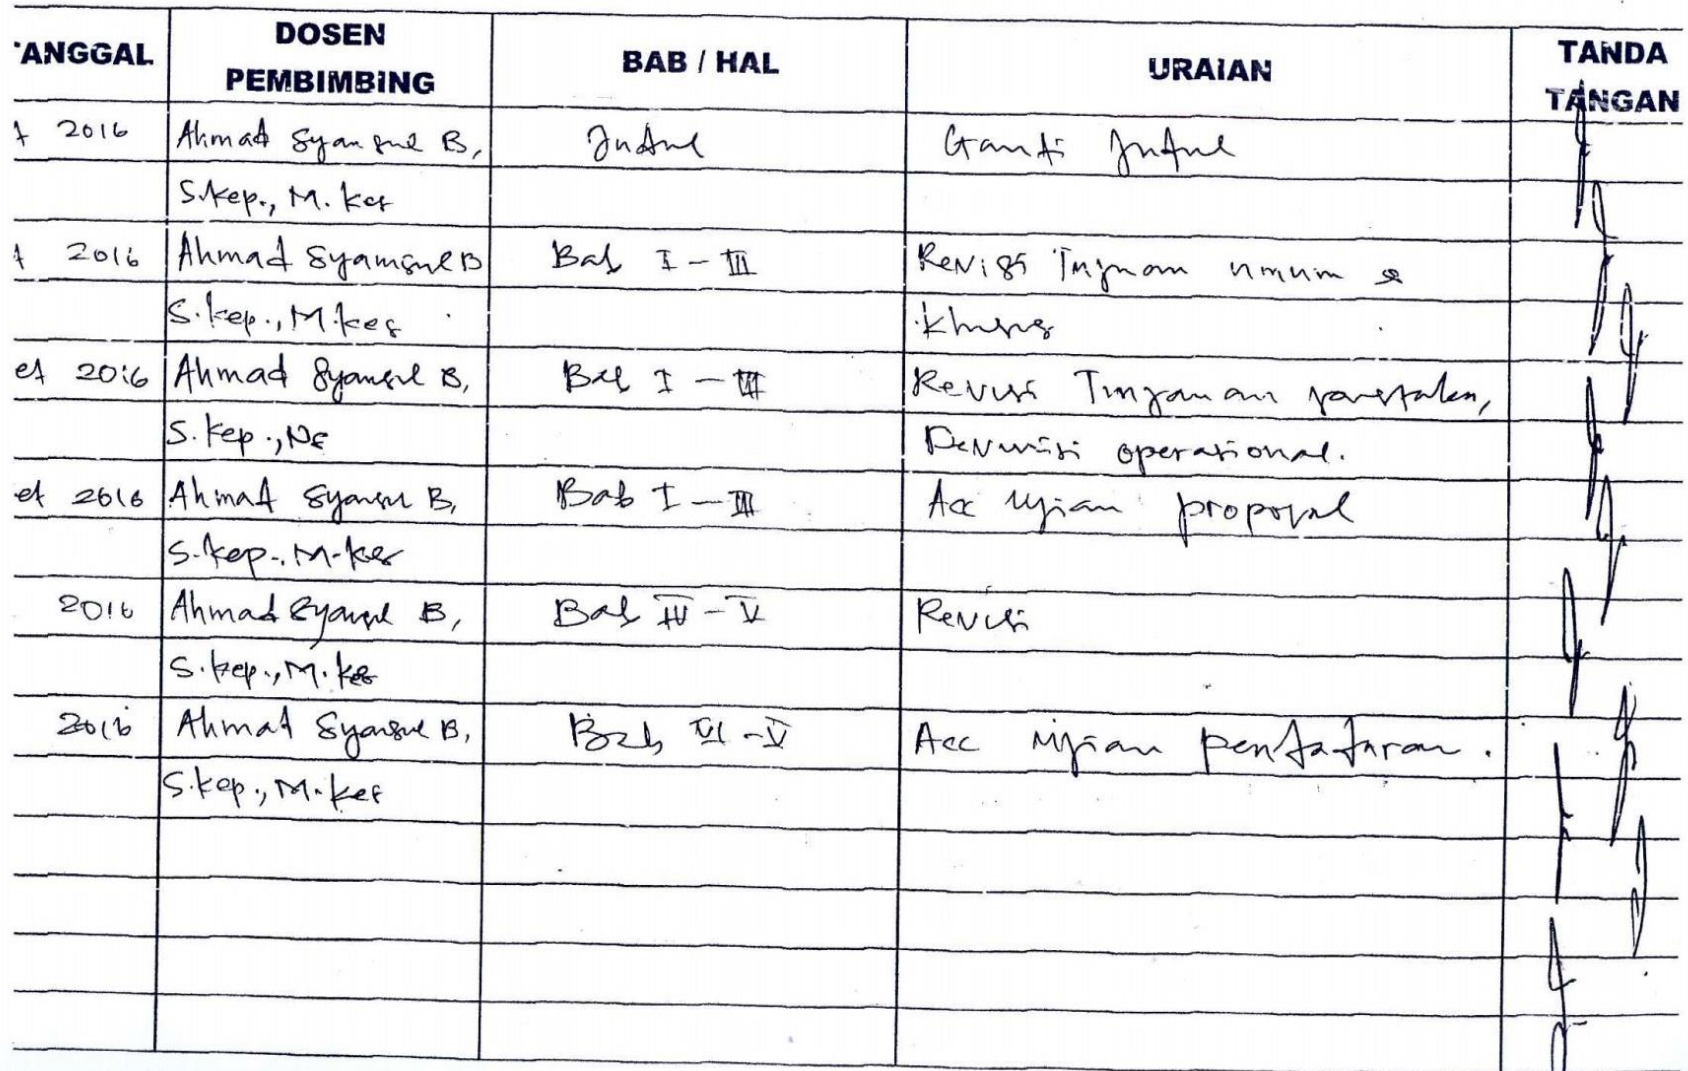 TANGGAL DOSEN PEMBIMBING BAB / HAL URAIAN TANDA TANGAN
2016 Ahmad Syamsul B, Judul Ganti Judul
S.kep., M.kes
2016 Ahmad Syamsul B Bab I - III Revisi Tujuan umum &
S.kep., M.kes khusus
et 2016 Ahmad Syamsul B, Bab I - III Revisi Tinjauan pustaka,
S.kep., Ns Definisi operasional.
et 2016 Ahmad Syamsul B, Bab I - III Acc ujian proposal
S.kep., M.kes
2016 Ahmad Syamsul B, Bab IV - V Revisi
S.kep., M.kes
2016 Ahmad Syamsul B, Bab VI - V Acc ujian pendadaran.
S.kep., M.kes